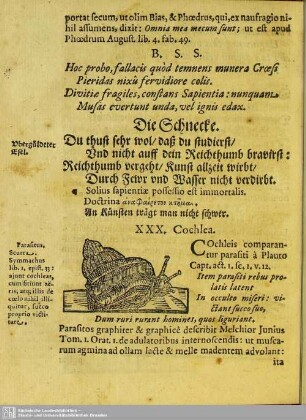 portat secum, ut olim Bias, & Phœdrus, qui, ex naufragio nihil
assumens, dixit: Omnia mea mecum sunt; ut est apud
Phœdrum August. lib. 4. fab. 49.
B. S. S.
Hoc probo, fallacis quòd temnens munera Crœsi
Pieridas nixū fervidiore colis.
Divitiæ fragiles, constans Sapientia: nunquam
Musas evertunt unda, vel ignis edax.
Die Schnecke.
Vbergüldeter
Esel.
Du thust sehr wol/ daß du studierst/
Vnd nicht auff dein Reichthumb bravirst:
Reichthumb vergeht/ Kunst allzeit wirbt/
Durch Fewr vnd Wasser nicht verdirbt.
Solius sapientiæ possessio est immortalis.
Doctrina ἀναφαίρετον κτῆμα.
An Künsten trägt man nicht schwer.
XXX. Cochlea.
Parasita.
Scurra.
Symmachus
lib. 1. epist. 33:
ajunt cochleas,
cum sitiunt aëris,
atq; illis de
cœlo nihil illiquitur,
succo
proprio victitare.
Cochleis comparantur
parasiti à Plauto
Capt. act. 1. sc. 1. v. 12.
Item parasiti rebus prolatis
latent
In occulto miseri: victitant
succo suo,
Dum ruri rurant homines, quos liguriant.
Parasitos graphiter & graphicè describit Melchior Junius
Tom. 1. Orat. 1. de adulatoribus internoscendis: ut muscarum
agmina ad ollam lacte & melle madentem advolant:
ita